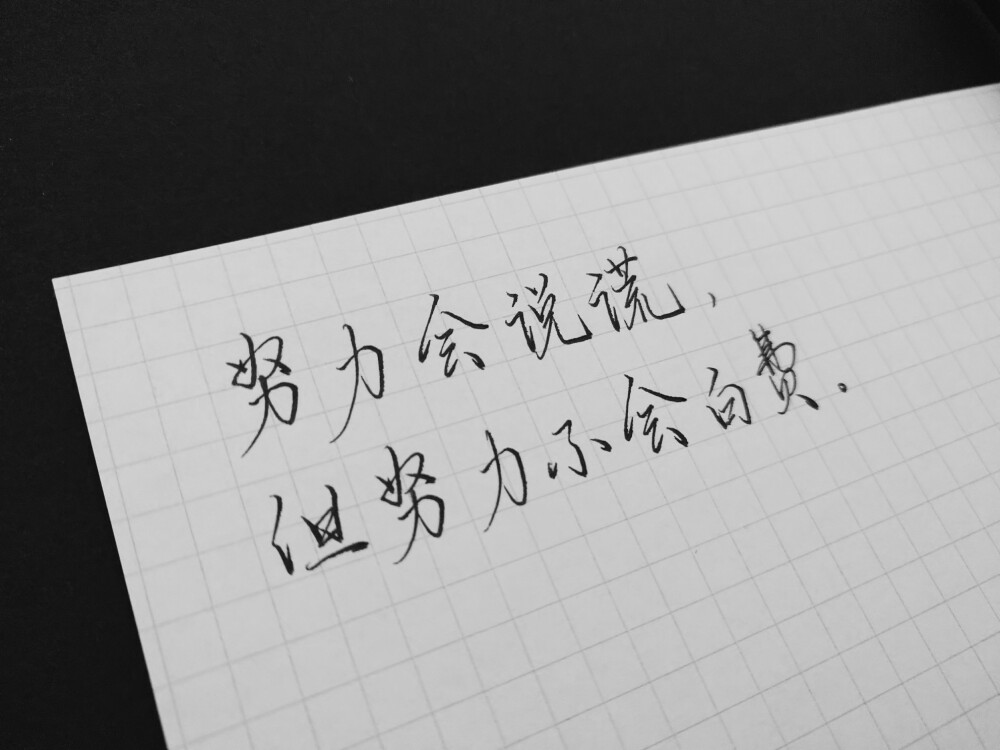 努力会说谎,
但努力不会白费.